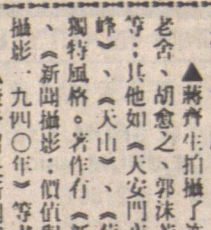 ▲蔣齊生拍攝了
老舍、胡愈之、郭沫
等;其他如《天安門
峰》、《天山》、《
獨特風格。著作有《新
、《新聞攝影:價值
攝影一九四〇年》等